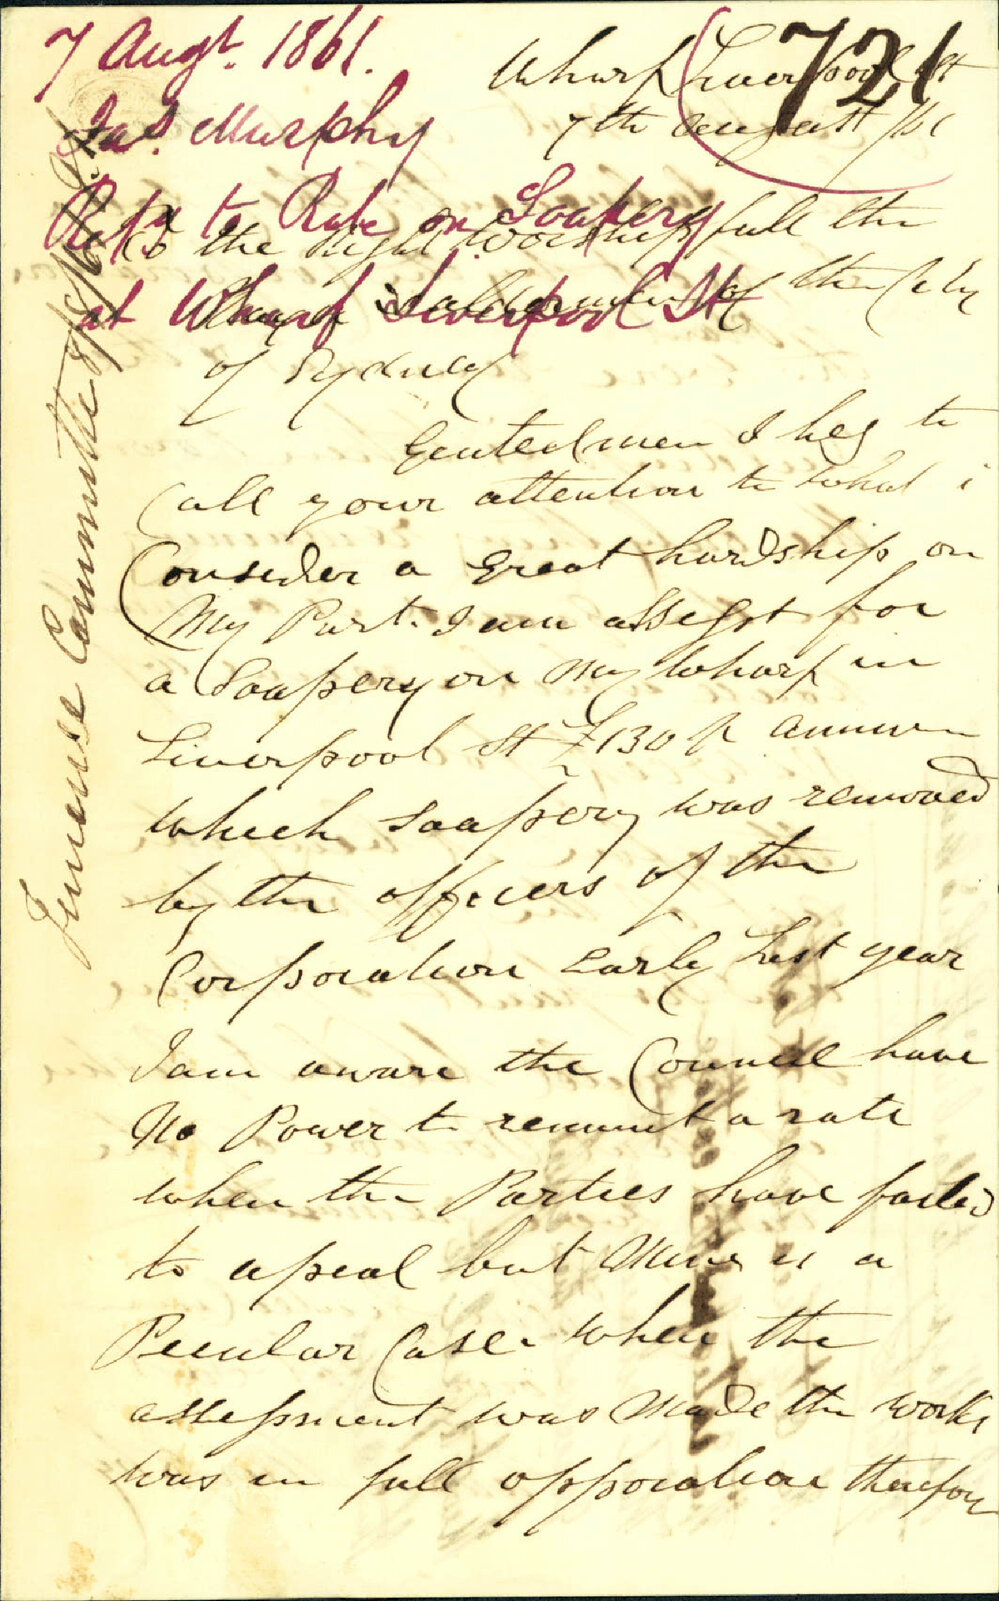 721
7 Augt. 1861.
Jas. Murphy
Refs to Rate on Soapery
at Wharf Liverpool St
Finance Committee 8/8/61
Wharf Liverpool St
7th August /61
To the Right Worshipfull the
Mayor & Aldermen of the City
of Sydney
Gentedmen I beg to
Call your attention to what i
Consider a great hardship on
My Part. I am assesst for
a Soapery on My Wharf in
Liverpool St £130 Pr annum
which soapery was removed
by the officers of the
Corporation Early Last year
I am aware the Councel have
No Power to remmit a rate
when the Parties have failed
to apeal but Mine is a
Pecular Case when the
assessment was Made the works
was in full opporation therefore